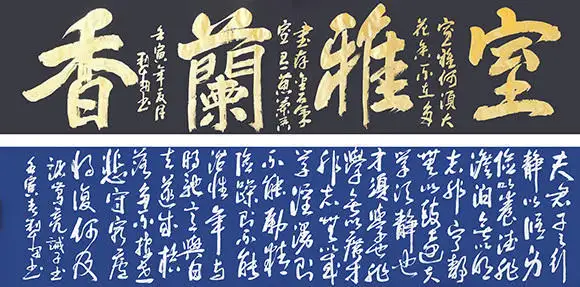 室
室雅何須大
花香不在多
雅
書存金石氣
室有蕙蘭香
蘭
壬寅年夏月
書
香
夫君子之行
静以修身
儉以養德非
澹泊無以明
志非寧静
無以致遠夫
学須静也
才須學也非
學無以廣才
非志無以成
学淫漫則
不能勵精
險躁則不能
治性年與
時馳意與日
去遂成枯
落多不接世
悲守窮廬
将復何及
諸葛亮誡子書
壬寅春 書